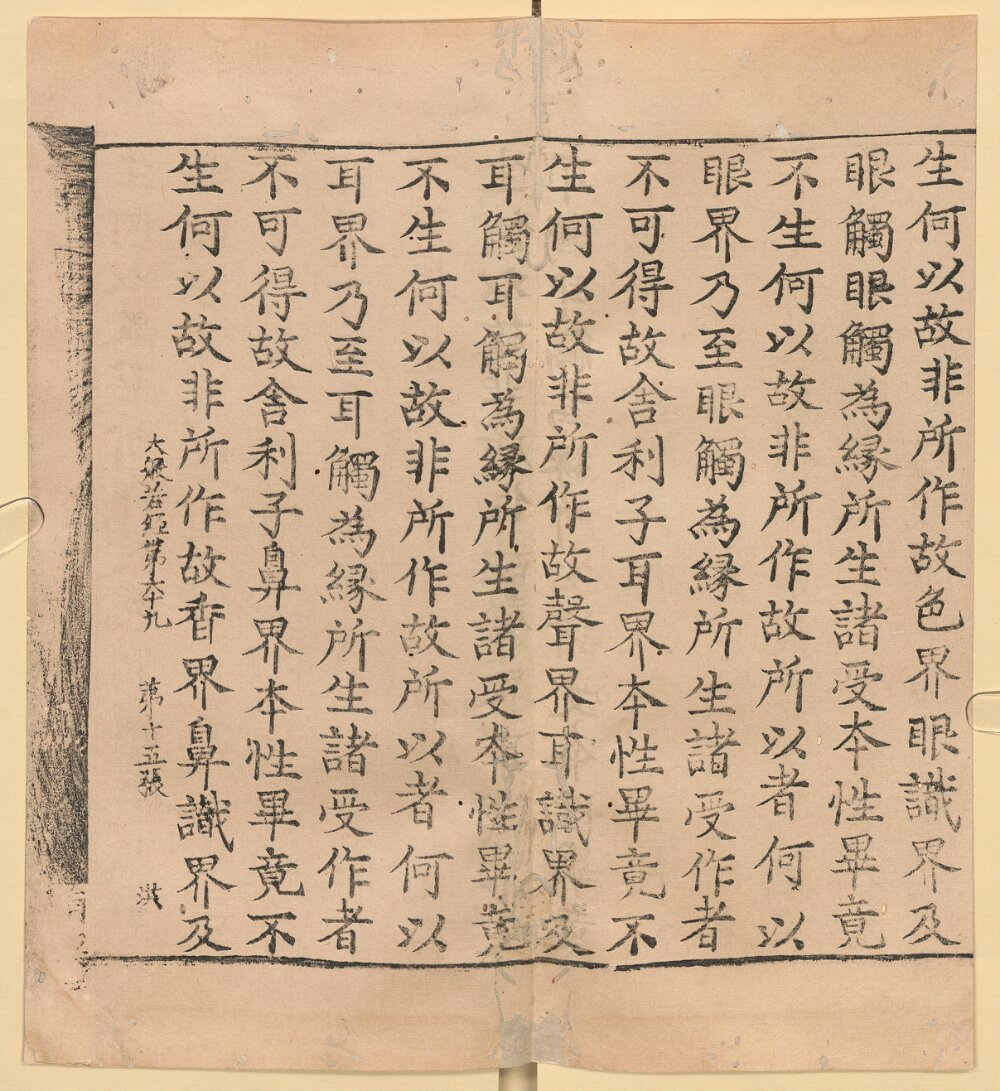 生何以故非所作故色界眼識界及
眼觸眼觸為緣所生諸受本性畢竟
不生何以故非所作故所以者何以
眼界乃至眼觸為緣所生諸受作者
不可得故舍利子耳界本性畢竟不
生何以故非所作故聲界耳識界及
耳觸耳觸為緣所生諸受本性畢竟
不生何以故非所作故所以者何以
耳界乃至耳觸為緣所生諸受作者
不可得故舍利子鼻界本性畢竟不
生何以故非所作故香界鼻識界及
大般若經第六十九 第十五張